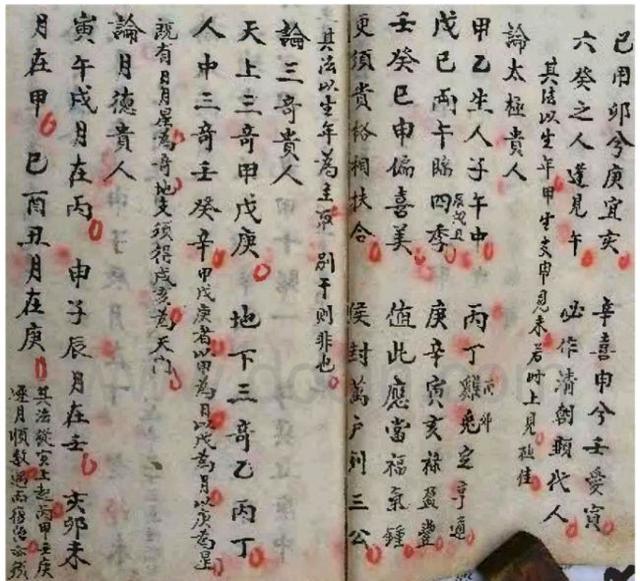 巳用卯兮庚宜亥 辛喜申兮壬愛寅
六癸之人逢見午 必作清朝顯代人
其法以生年甲生支申見未若時上見極佳
論太極貴人
甲乙生人子午中 丙丁雞兔酉卯定亨通
戊己兩午臨四季辰戌丑 庚辛寅亥祿盈豐
壬癸巳申偏喜美 值此應當福氣鍾
更須貴格相扶合 候封萬户列三公
其法以生年為主取別干則非也
論三奇貴人
天上三奇甲戊庚 地下三奇乙丙丁
人中三奇壬癸辛 甲戊庚者以甲為日以戊為月以庚為星
既有日月星為奇地支須得戌亥為天門
論月德貴人
寅午戌月在丙 申子辰月在壬 亥卯未
月在甲 巳酉丑月在庚 其法從寅上起丙甲壬庚
逐月順數週而復始